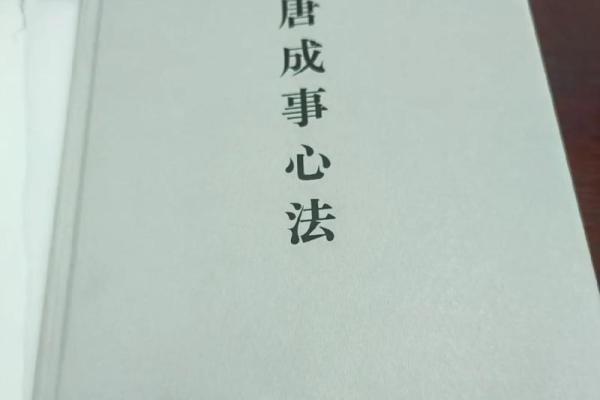 唐成事心法